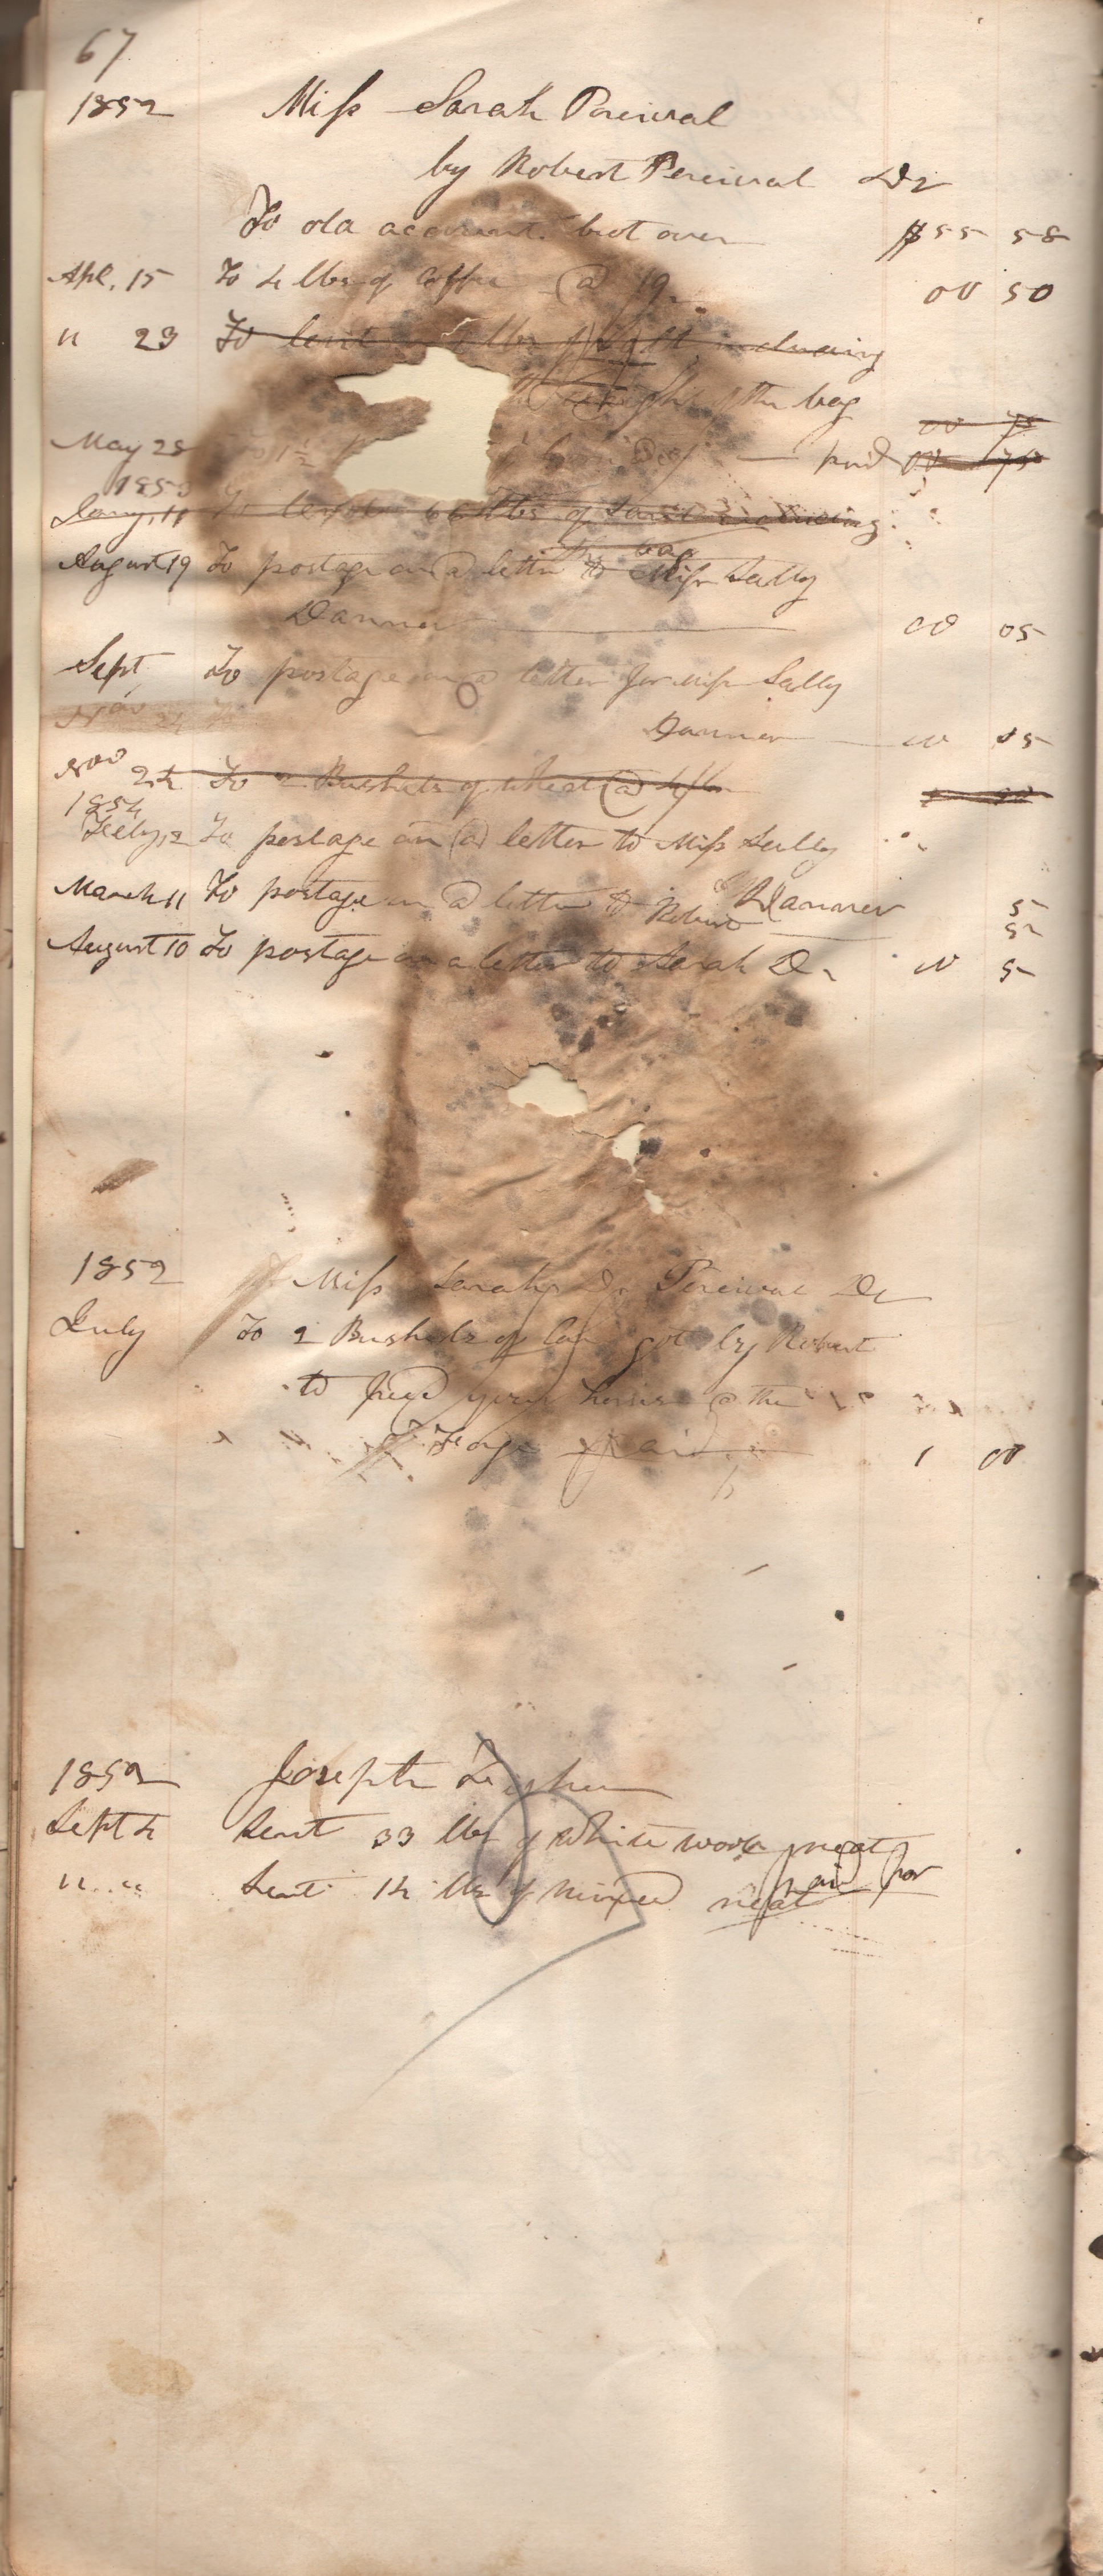 67
1852 Miss Sarah Percival
by Robert Percival Dr
To old account brot over $55 58
Apl. 15 To 4 lbs of Coffee @ 12 00 50
" 23 To lbs of Salt including
weight of the bag 00 75
May 28 To 1 1/2 paid 00 75
1853
Jany, 11 To 66 lbs of Salt including
the bag
August 19 To postage on a letter to Miss Sally
Danner 00 05
Sept To postage on a letter for Miss Sally
Nov 24 To
Danner 00 05
Nov 24 To 2 Bushels of wheat @
1854
Feby, 2 To postage on a letter to Miss Sally
Danner 5
March 11 To postage on a letter to Robert 5
August 10 To postage on a letter to Sarah D. 00 5
1852 Miss Sarah D. Percival Dr
July To 2 Bushels of got by Robert
to feed your horse @ the
Forge paid 1 00
1852 Joseph
Sept 4 Sent 33 lbs of White wool neat
" " Sent 14 lbs of mixed neat paid for